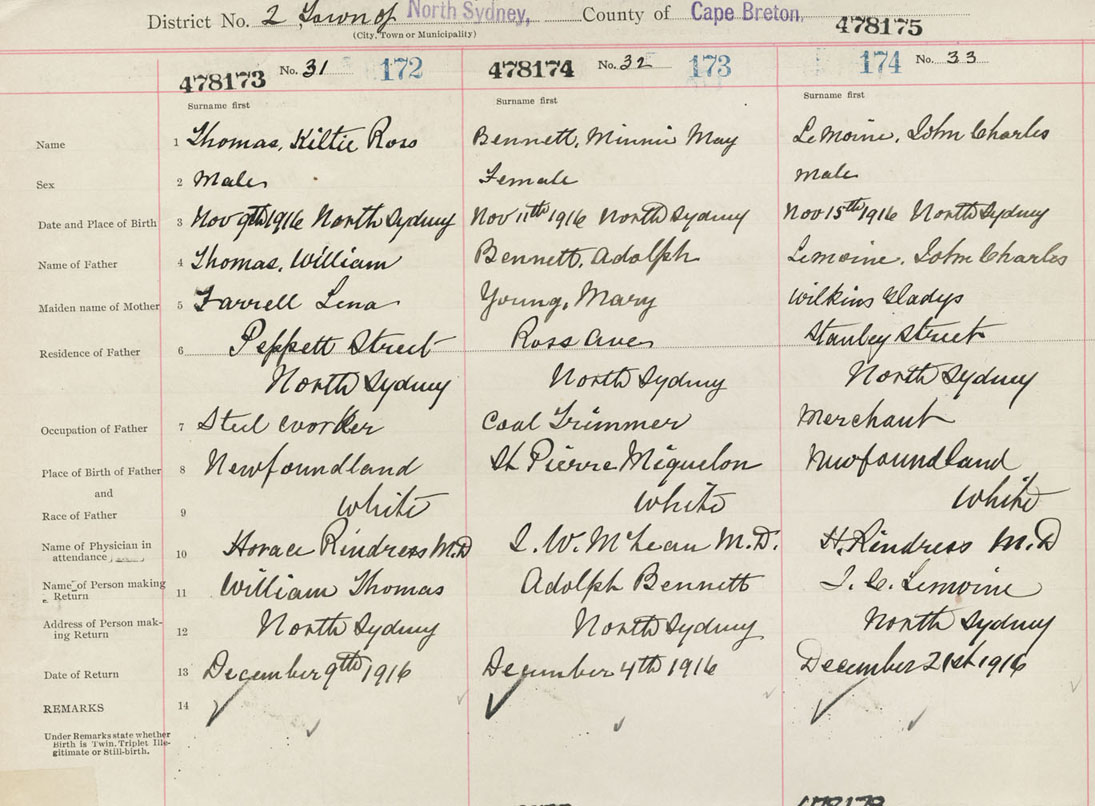 District No. 2, Town of North Sydney, County of Cape Breton,
(City, Town or Municipality)
478173 No. 31 172 478174 No. 32 173 478175 174 No. 33
Surname first Surname first Surname first
Name 1 Thomas, Kiltie Ross Bennett, Minnie May LeMoine, John Charles
Sex 2 Male Female Male
Date and Place of Birth 3 Nov 9th 1916 North Sydney Nov 11th 1916 North Sydney Nov 15th 1916 North Sydney
Name of Father 4 Thomas, William Bennett, Adolph Lemoine, John Charles
Maiden name of Mother 5 Farrell Lena Young, Mary Wilkins Gladys
Residence of Father 6 Peppett Street Ross Ave Stanley Street
North Sydney North Sydney North Sydney
Occupation of Father 7 Steel worker Coal Trimmer Merchant
Place of Birth of Father 8 Newfoundland St Pierre Miquelon Newfoundland
and
Race of Father 9 White White White
Name of Physician in
attendance 10 Horace Rindress M.D I. W. McLean M.D. H. Rindress M.D
Name of Person making
Return 11 William Thomas Adolph Bennett J. C. Lemoine
Address of Person mak-
ing Return 12 North Sydney North Sydney North Sydney
Date of Return 13 December 9th 1916 December 4th 1916 December 21st 1916
REMARKS 14
Under Remarks state whether
Birth is Twin, Triplet Ille-
gitimate or Still-birth.